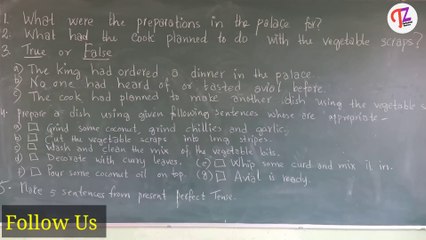 TZ
1. What were the preparations in the palace for?
2. What had the cook planned to do with the vegetable scraps?
3. True or False
a) The king had ordered a dinner in the palace
b) No one had heard of or tasted avial before.
c) The cook had planned to make another dish using the vegetable s
4. Prepare a dish using given following sentences whose are appropriate-
a) Grind some coconut, grind chillies and garlic.
b) Cut the vegetable scraps into long stripes.
c) Wash and clean the mix of the vegetable bits.
d) Decorate with curry leaves. (e) Whip some curd and mix it in.
f) Pour some coconut oil on top. (g) Avial is ready.
5. Make 5 sentences from present perfect Tense.
Follow Us